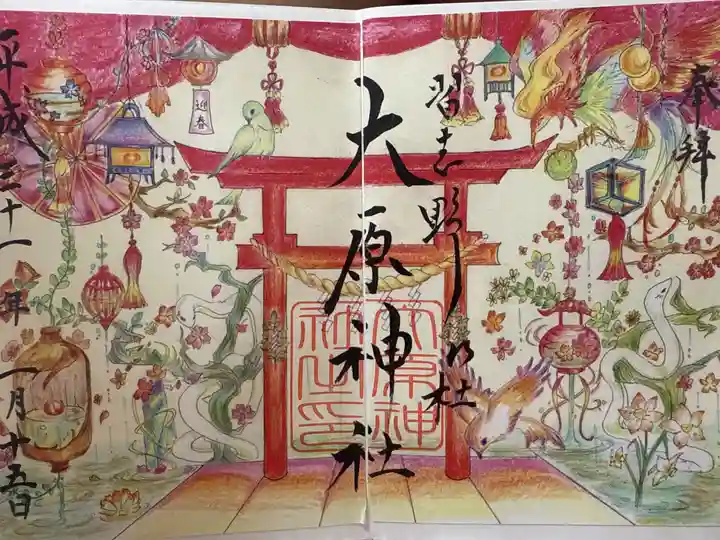 奉拝
習志野の杜
大原神社
大原神
社之印
迎春
平成三十一年一月十五日